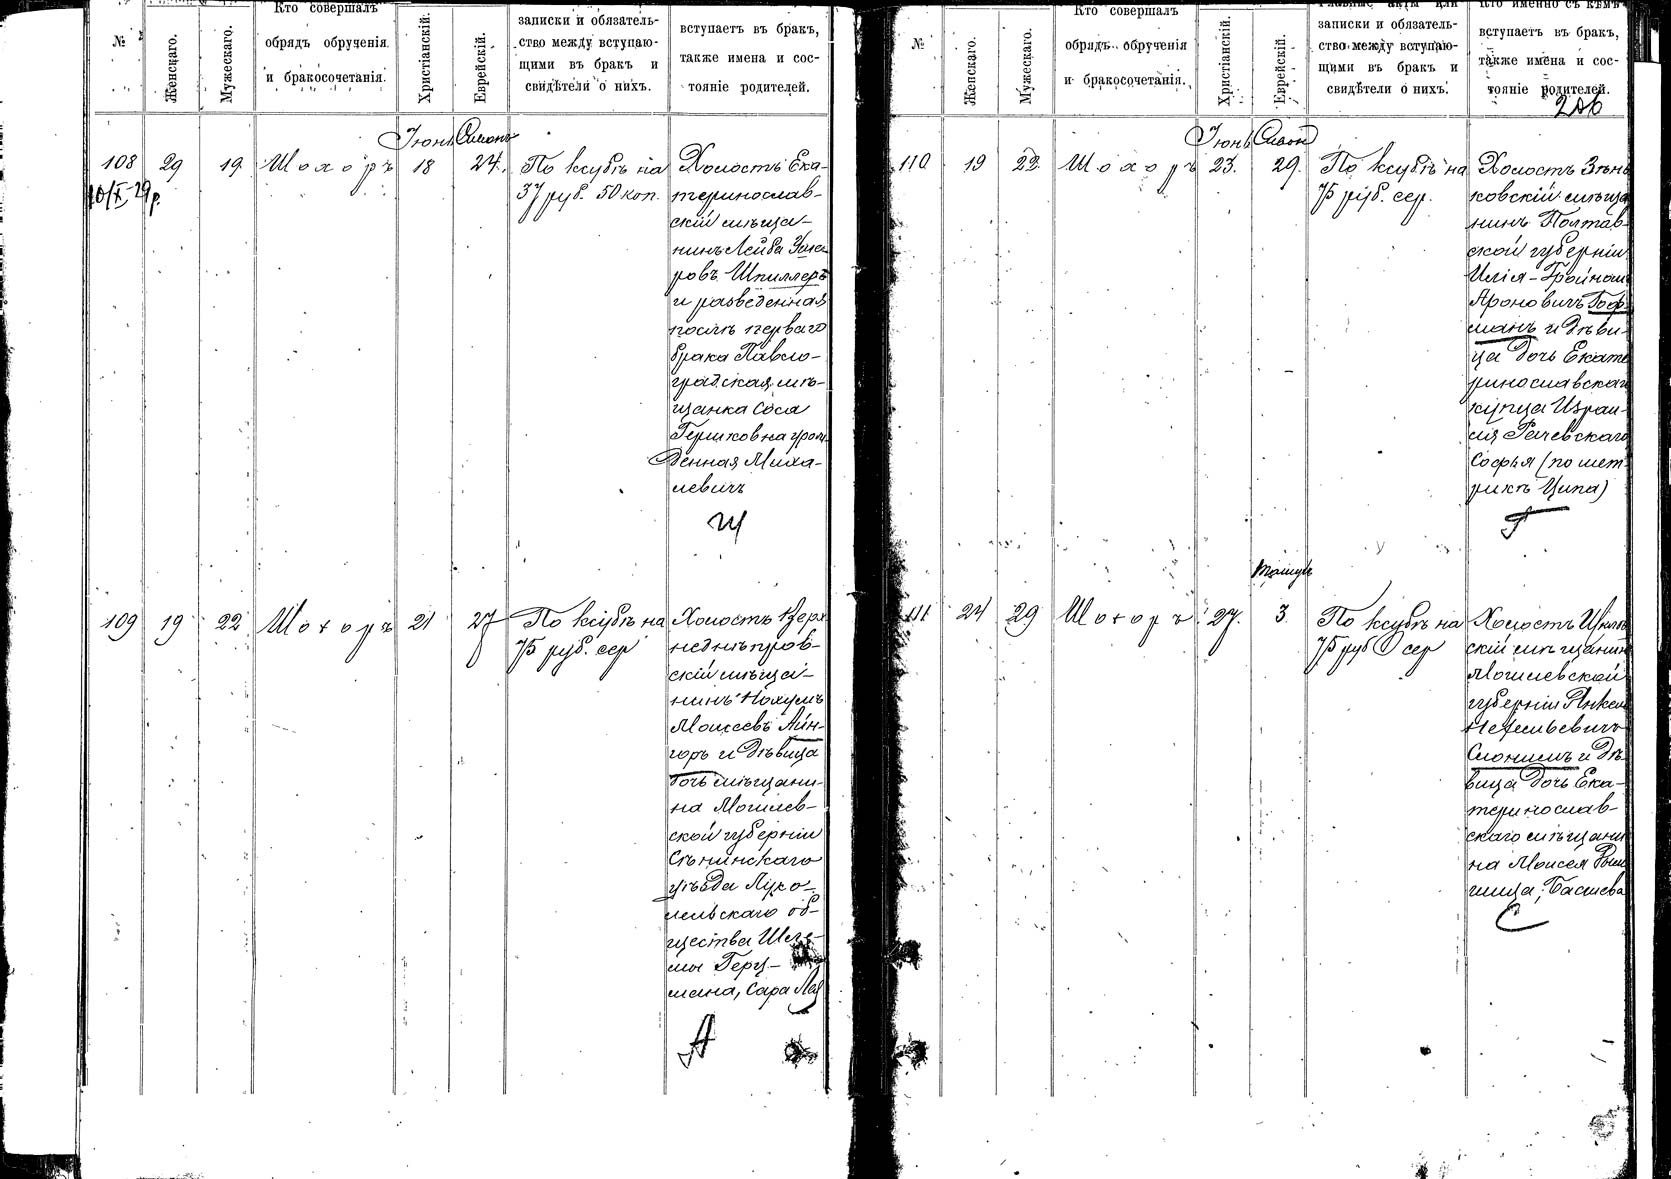 №
Женскаго.
Мужескаго.
Кто совершалъ
обрядъ обрученія
и бракосочетанія.
Христіанскій.
Еврейскій.
записки и обязатель-
ство между вступаю-
щими въ бракъ и
свидѣтели о нихъ.
вступаетъ въ бракъ,
также имена и сос-
тояніе родителей.
Іюнь Сивонъ
108 29 19 Шохоръ 18 24. По ксубѣ на
37 руб. 50 коп.
10/X 29 р.
Холостъ Ека-
теринослав-
скій мѣща-
нинъ Лейба
ровъ Шпиллеръ
и разведенная
послѣ перваго
брака Павло-
градская мѣ-
щанка Сося
Гершковна урож
денная Миха-
левичъ
Ш
109 19 22 Шохоръ 21 27 По ксубѣ на
75 руб. сер
Холостъ Верх
неднѣпров-
скій мѣща-
нинъ Нохумъ
Моисеевъ Айн-
горъ и дѣвица
дочь мѣщани-
на Могилев-
ской губерніи
Сѣнинскаго
уѣзда Луко-
мльскаго об-
щества Шле-
мы Герц-
мана, Сара Лея
А
№
Женскаго.
Мужескаго.
Кто совершалъ
обрядъ обрученія
и бракосочетанія.
Христіанскій.
Еврейскій.
Главные акты или
записки и обязатель-
ство между вступаю-
щими въ бракъ и
свидѣтели о нихъ.
Кто именно съ кѣмъ
вступаетъ въ бракъ,
также имена и сос-
тояніе родителей.
Іюнь Сивон
110 19 22 Шохоръ 23. 29. По ксубѣ на
75 руб. сер.
Холостъ Зѣнь
ковскій мѣща
нинъ Полтав-
ской губерніи
Илія-Гройном
Ароновичъ Гоф-
манъ и дѣви-
ца дочь Екате
ринославскаго
купца Изра-
иля Рачевскаго
Софья (по мет-
рикѣ Ципа)
Г
Тамузъ
111 24 29 Шохоръ 27. 3 По ксубѣ на
75 руб сер
Холостъ
скій мѣщанинъ
Могилевской
губерніи Янкель
Слонимъ и дѣ-
вица дочь Ека-
теринослав-
скаго мѣщани
на Моисея
Басшева
С